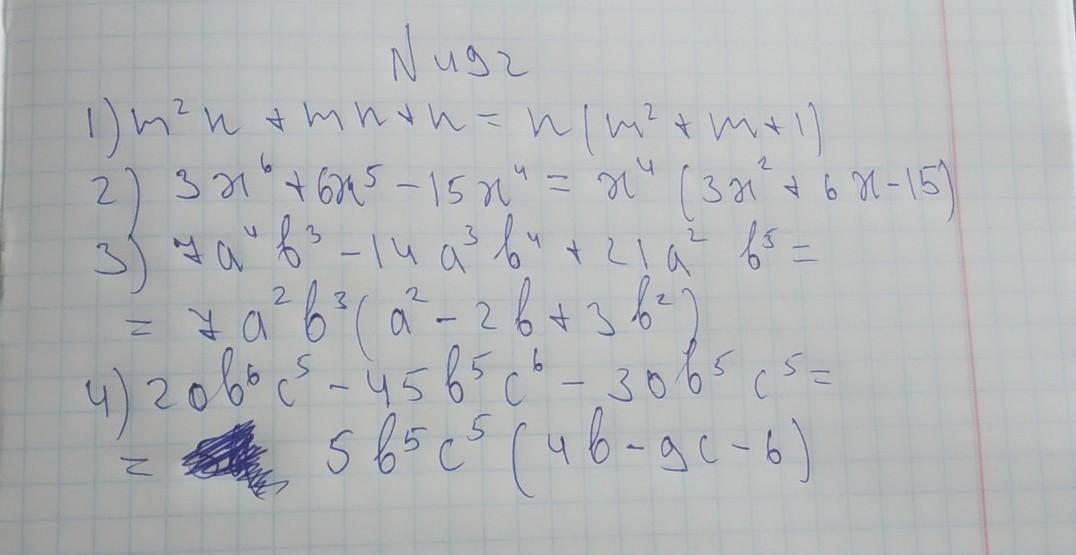 N 492
1) m² n + mn + n = n (m² + m + 1)
2) 3x⁶ + 6x⁵ - 15x⁴ = x⁴ (3x² + 6x - 15)
3) 7a⁴ b³ - 14 a³ b⁴ + 21a² b⁵ =
= 7a² b³ (a² - 2b + 3b²)
4) 20b⁶ c⁵ - 45b⁵ c⁶ - 30b⁵ c⁵ =
= 5b⁵ c⁵ (4b - 9c - 6)